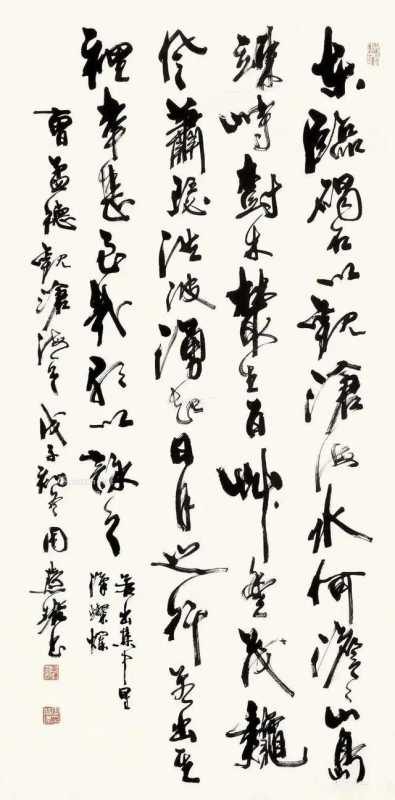 東臨碣石以觀滄海水何澹〻山島
竦峙樹木叢生百艸豐茂龝
風蕭瑟洪波湧起日月之行若出其
裡幸甚至哉歌以詠志
若出其中星
漢燦爛
曹孟德觀滄海 戊子初冬周慧珺書